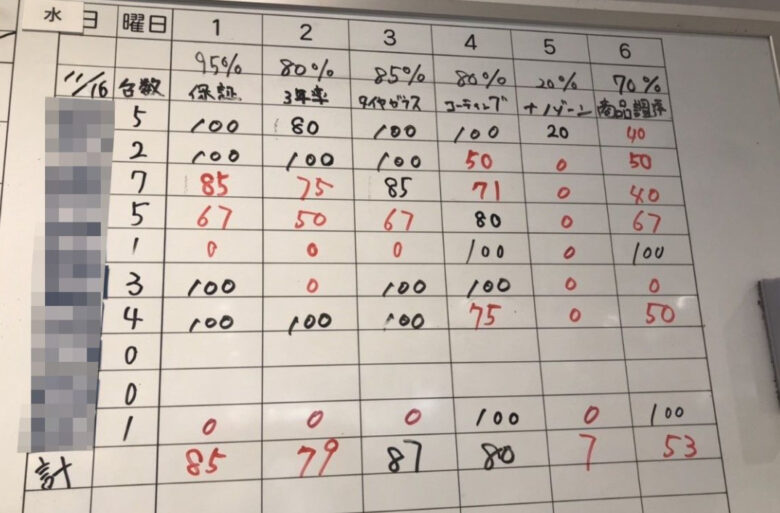 水 日 曜日 1 2 3 4 5 6
95% 80% 85% 80% 20% 70%
11/16 台数 保証 3年率 タイヤガラス コーティング ナノゾーン 商品調序
5 100 80 100 100 20 40
2 100 100 100 50 0 50
7 85 75 85 71 0 40
5 67 50 67 80 0 67
1 0 0 0 100 0 100
3 100 0 100 100 0 0
4 100 100 100 75 0 50
0
0
1 0 0 0 100 0 100
計 85 79 87 80 7 53